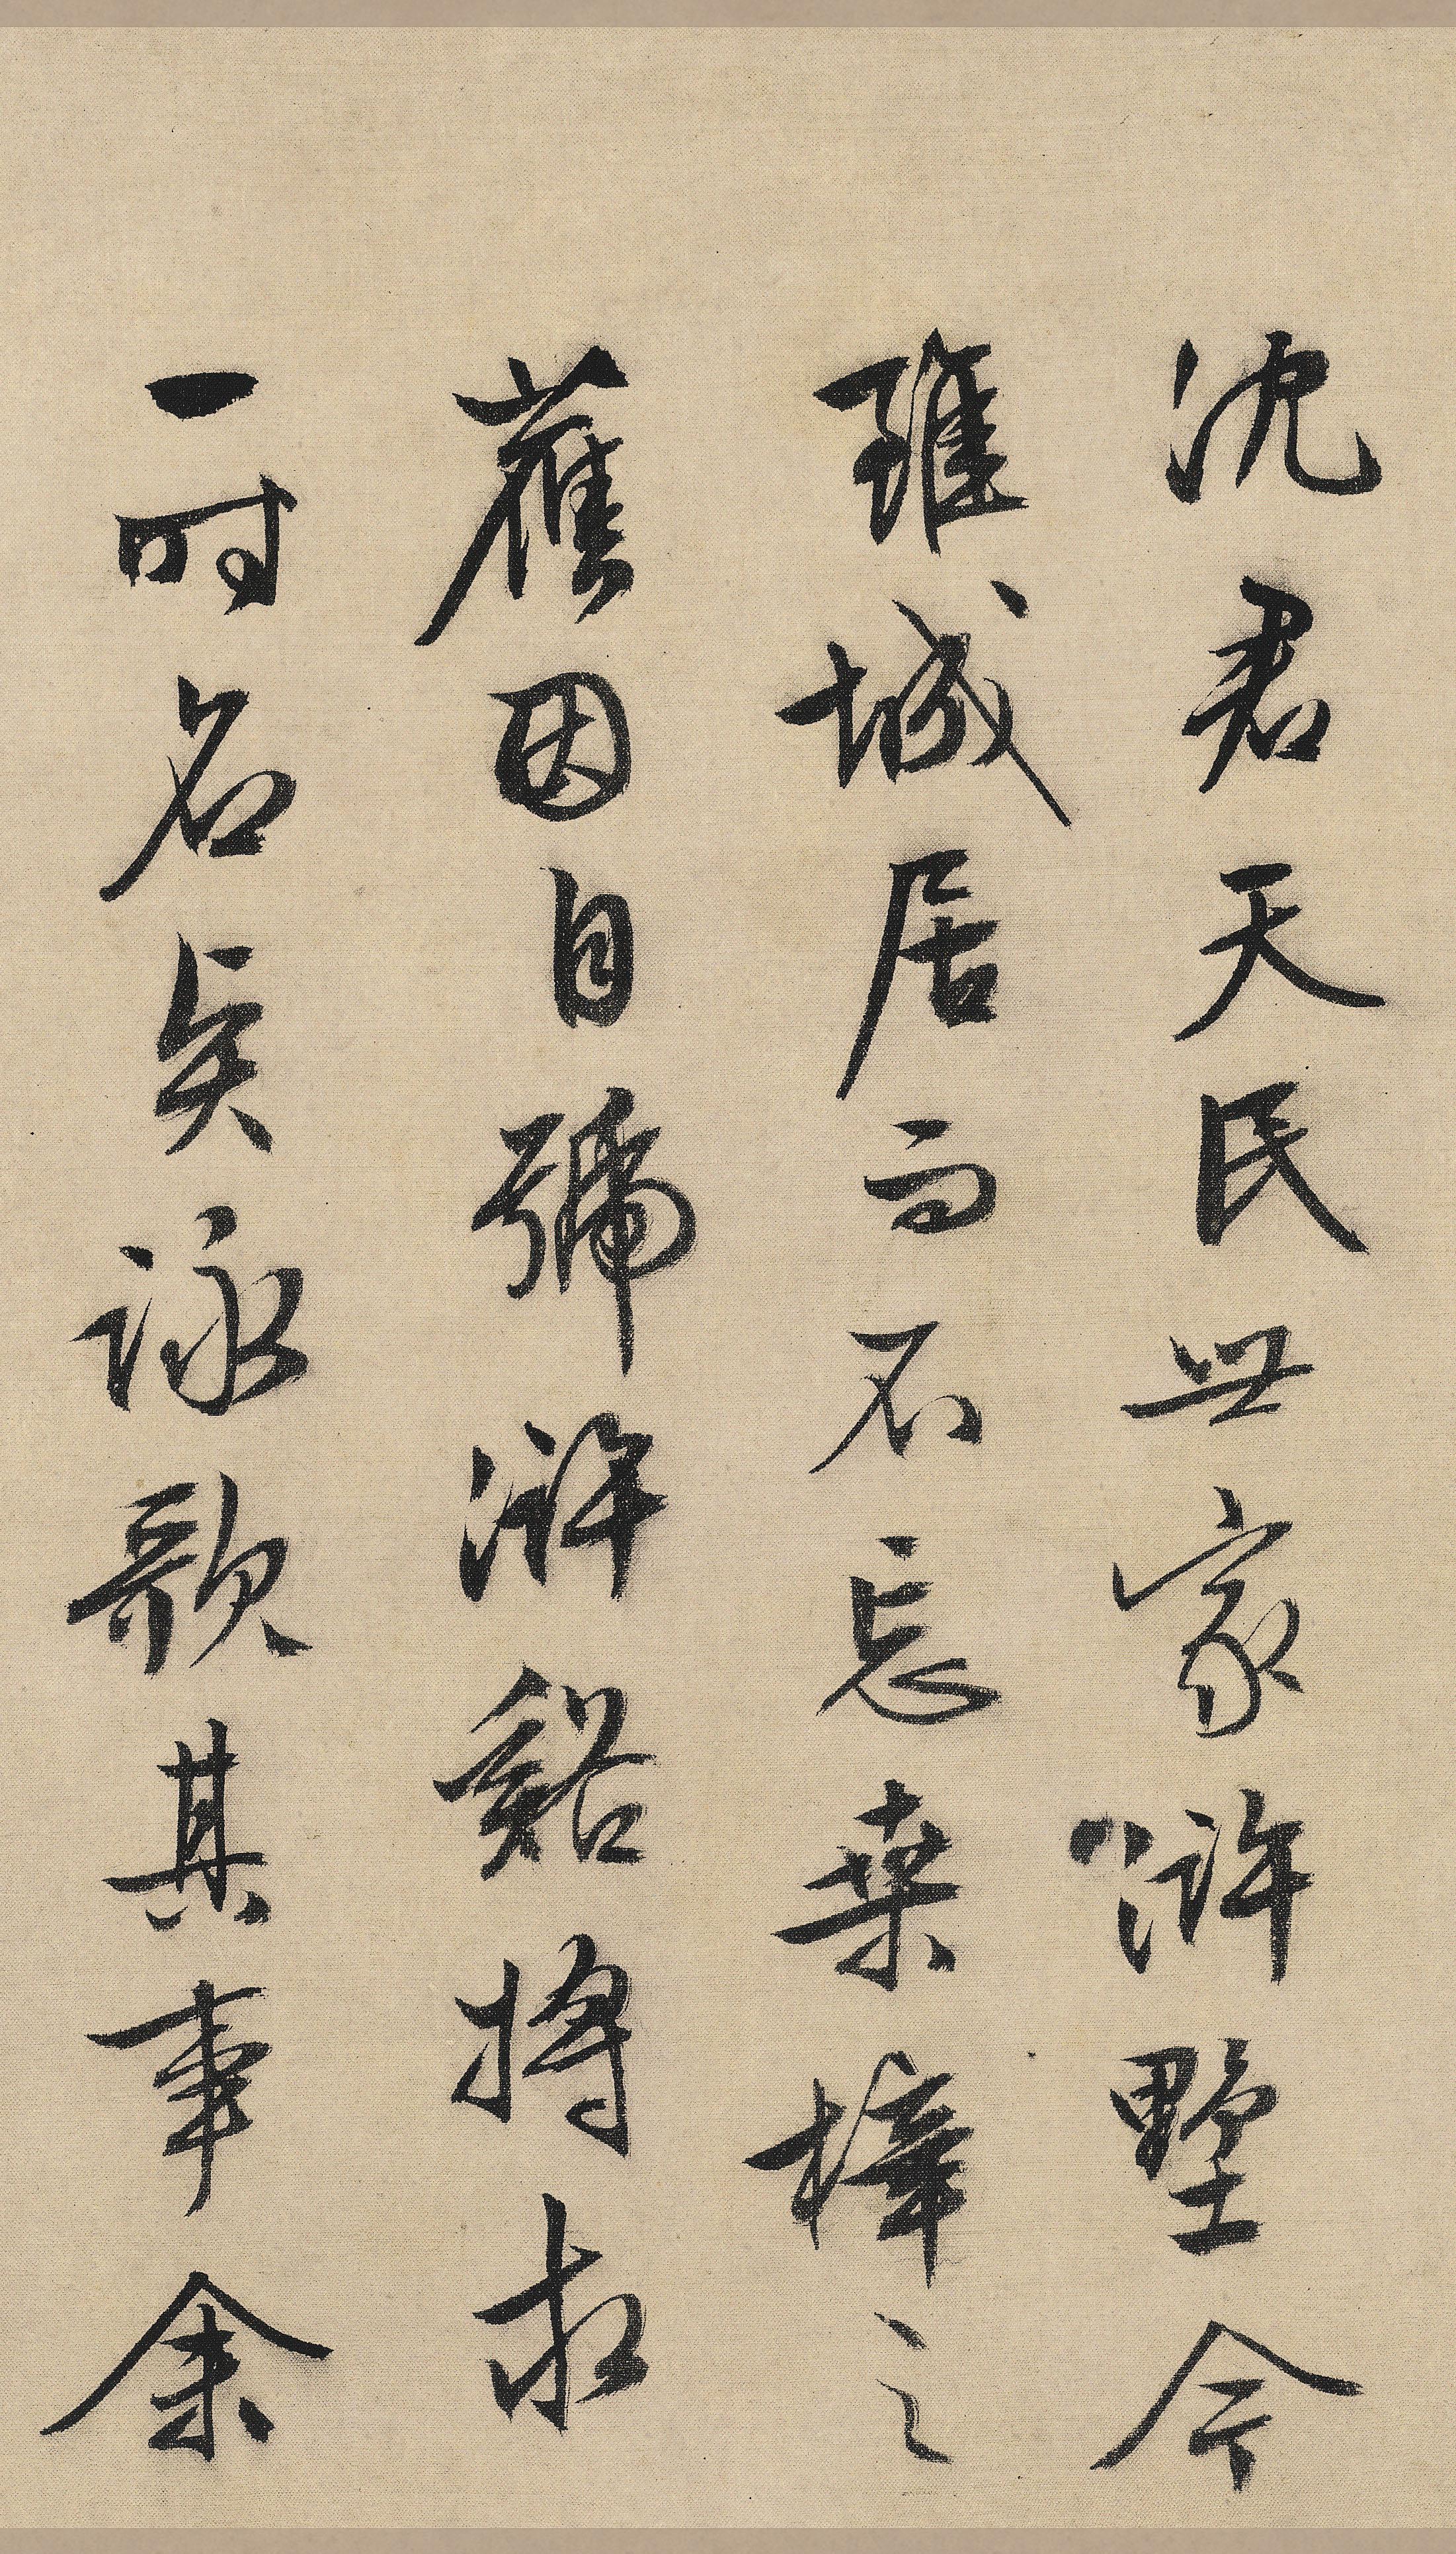 沈君天民世家滸墅今
雖城居而不忘桑梓之
舊因自號滸谿將求
一時名賢詠歌其事余